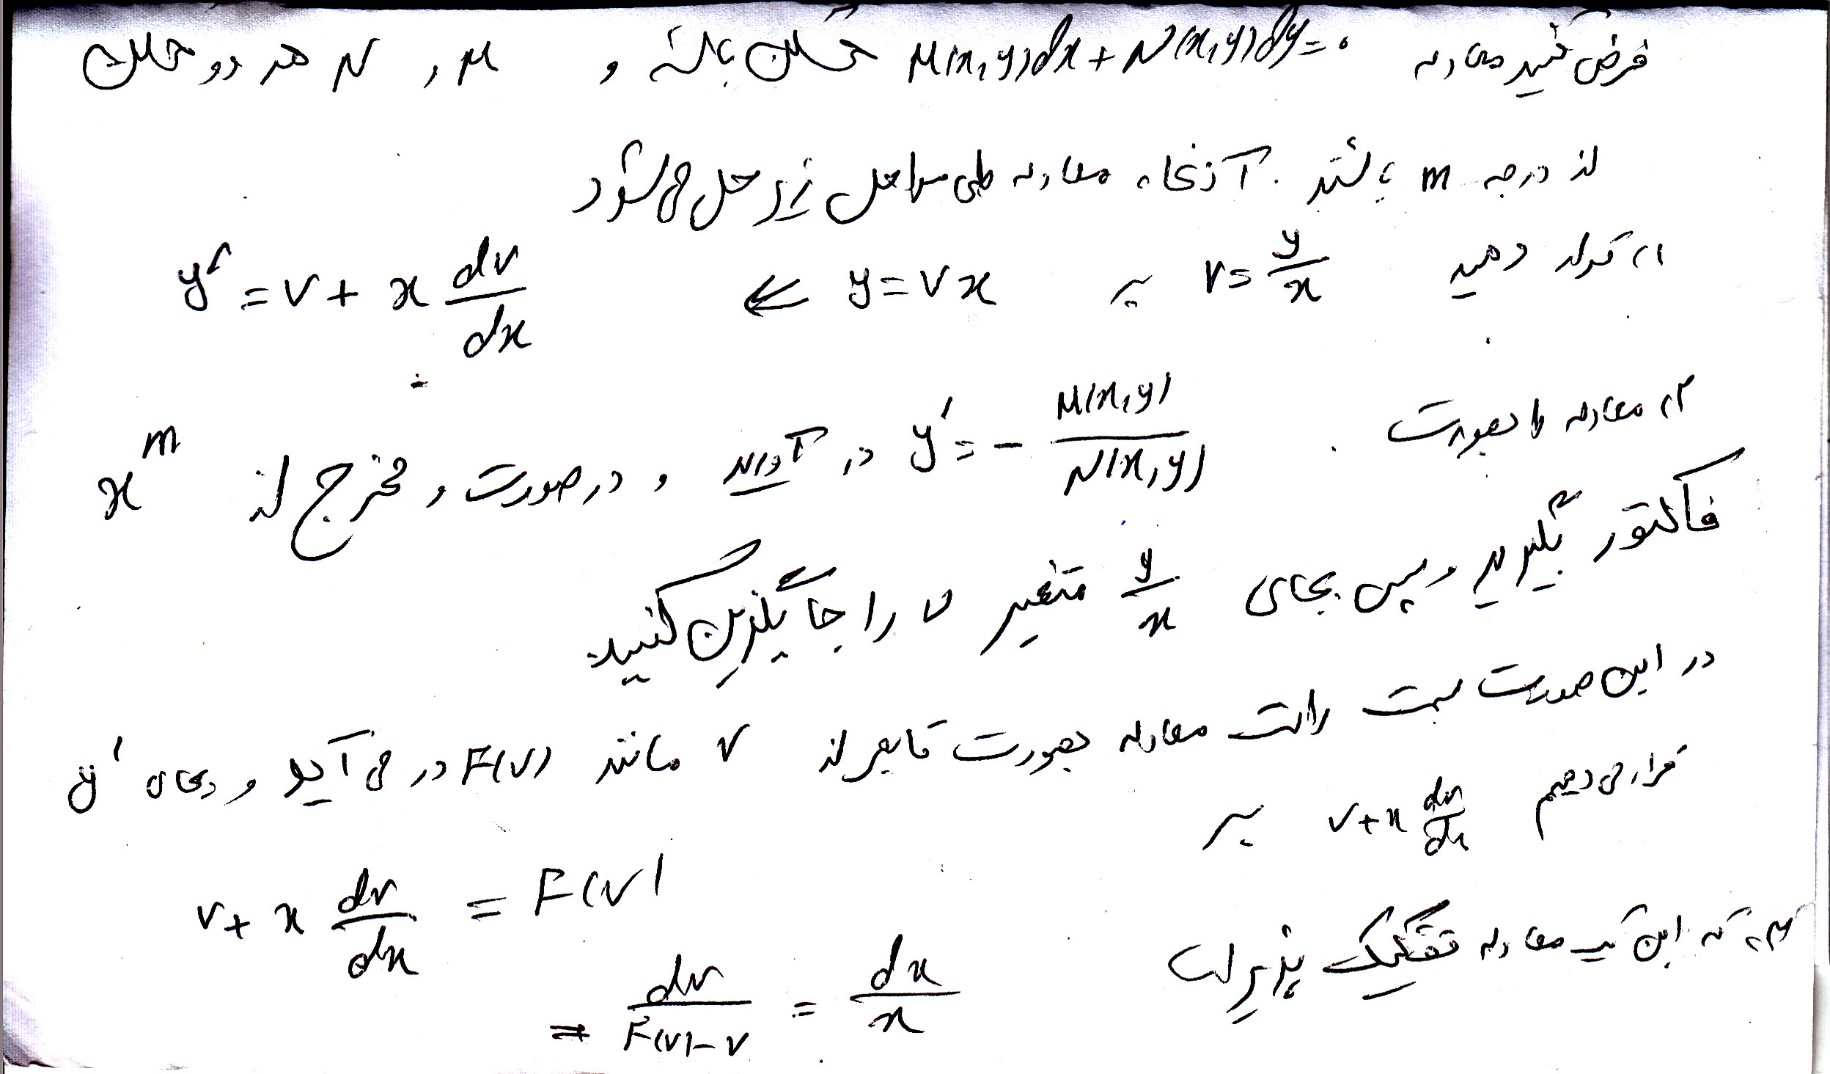 فرض کنید معادله M(x,y)dx + N(x,y)dy = 0 همگن باشد و M و N هر دو همگن
از درجه m باشند. آنگاه معادله طی مراحل زیر حل می شود
۱) قرار دهید v = y/x پس y = vx ⇐ y' = v + x dv/dx
۲) معادله را بصورت y' = - M(x,y)/N(x,y) در آورید و در صورت و مخرج از x^m
فاکتور بگیرید و سپس بجای y/x متغیر v را جایگزین کنید.
در این صورت سمت راست معادله بصورت تابعی از v مانند F(v) در می آید و بجای y'
قرار می دهیم v + x dv/dx پس
v + x dv/dx = F(v)
۳) که این یک معادله تفکیک پذیر است
= dv/F(v)-v = dx/x